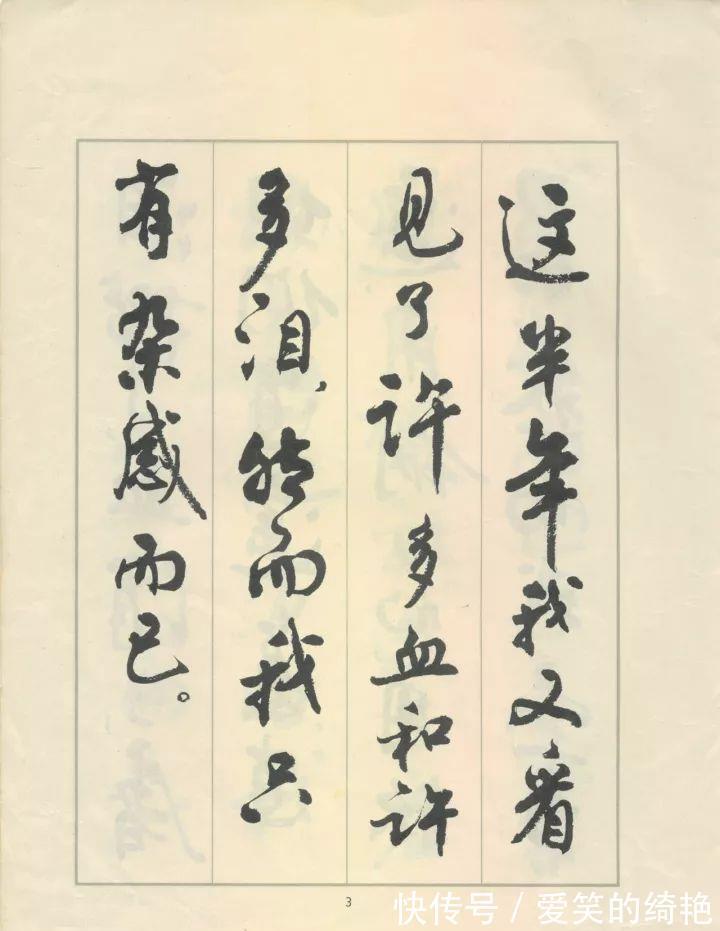 这半年我又看
见了许多血和许
多泪，然而我只
有杂感而已。
3
快传号/爱笑的绮艳